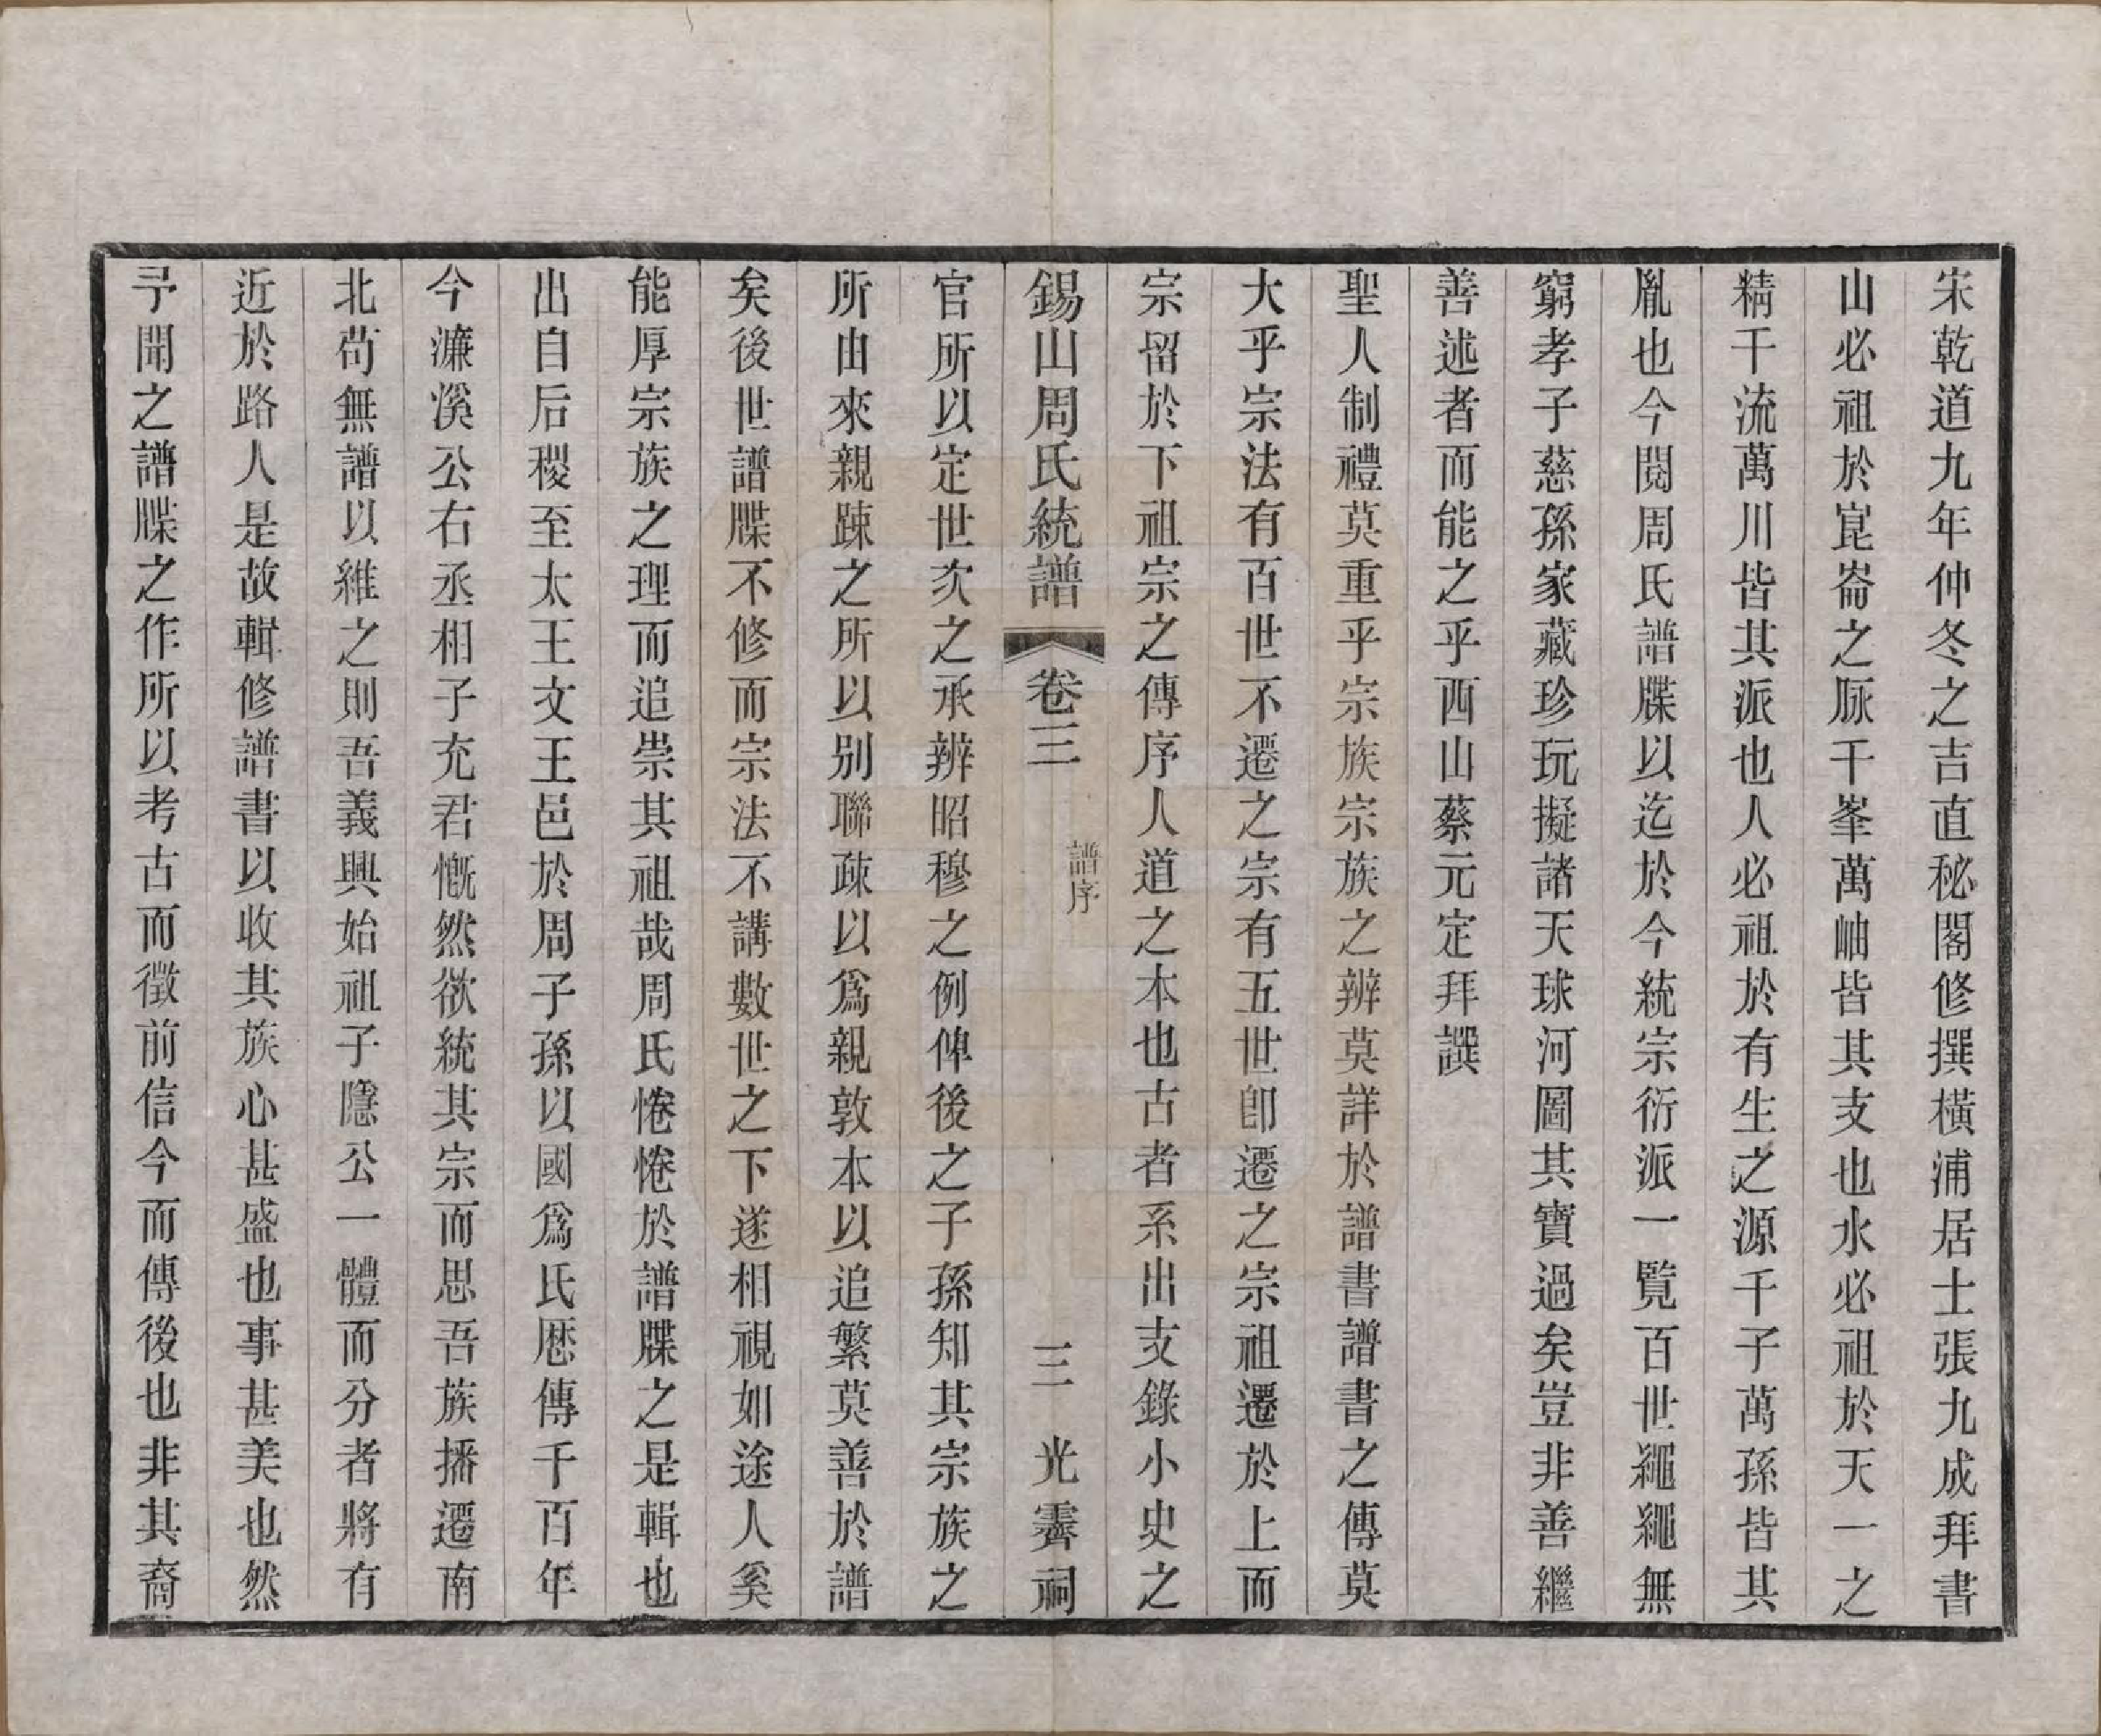 宋乾道九年仲冬之吉直秘閣修撰橫浦居士張九成拜書
山必祖於崑崙之脈千峯萬岫皆其支也水必祖於天一之
精千流萬川皆其派也人必祖於有生之源千子萬孫皆其
胤也今閱周氏譜牒以迄於今統宗衍派一覧百世繩繩無
窮孝子慈孫家藏珍玩擬諸天球河圖其寶過矣豈非善繼
善述者而能之乎西山蔡元定拜譔
聖人制禮莫重乎宗族宗族之辨莫詳於譜書譜書之傳莫
大乎宗法有百世不遷之宗有五世卽遷之宗祖遷於上而
宗留於下祖宗之傳序人道之本也古者系出支錄小史之
錫山周氏統譜 卷三 譜序 三 光霽祠
官所以定世次之承辨昭穆之例俾後之子孫知其宗族之
所由來親踈之所以别聯疎以爲親敦本以追繁莫善於譜
矣後世譜牒不修而宗法不講數世之下遂相視如途人奚
能厚宗族之理而追崇其祖哉周氏惓惓於譜牒之是輯也
出自后稷至太王文王邑於周子孫以國爲氏歷傳千百年
今濂溪公右丞相子充君慨然欲統其宗而思吾族播遷南
北苟無譜以維之則吾義興始祖子隱公一體而分者將有
近於路人是故輯修譜書以收其族心甚盛也事甚美也然
予聞之譜牒之作所以考古而徵前信今而傳後也非其裔